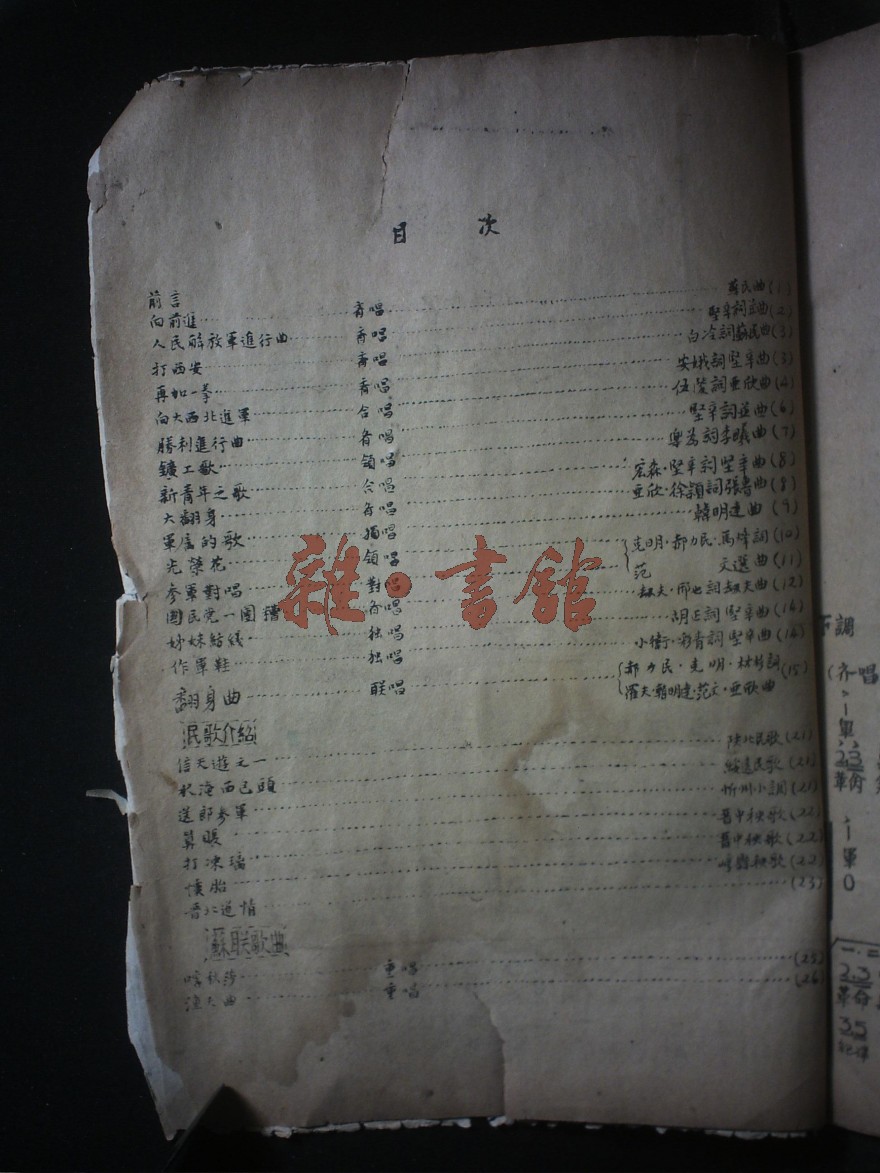 目 次
前言
向前進 齊唱 蘇民曲(1)
人民解放軍進行曲 齊唱 堅辛詞並曲(2)
打西安 齊唱 白冷詞蘇民曲(3)
再加一拳 齊唱 安娥詞堅辛曲(3)
向大西北進軍 合唱 詞亞欣曲(4)
勝利進行曲 齊唱 堅辛詞並曲(6)
鑛工歌 領唱 詞李曦曲(7)
新青年之歌 合唱 宏森·堅辛詞堅辛曲(8)
大翻身 齊唱 亞欣·徐穎詞張魯曲(8)
軍屬的歌 獨唱 韓明達曲(9)
光榮花 領唱 克明·郝力民·馬烽詞(10)
參軍對唱 對唱 范 文選曲(11)
國民党一團糟 齊唱 詞 曲(12)
姊妹結綫 独唱 胡正詞堅辛曲(14)
作軍鞋 独唱 小衛·彩青詞堅辛曲(14)
翻身曲 联唱 郝力民·克明·林杉詞(15)
羅夫·韓明達·范文·亞欣曲
民歌介紹
信天遊之一 陝北民歌(21)
水淹西包頭 綏遠民歌(21)
送郎參軍 忻州小調(21)
算賬 晋中秧歌(22)
打凍漓 晋中秧歌(22)
懷胎 秧歌(22)
晋北道情 (23)
蘇联歌曲
喀秋莎 重唱 (25)
漁夫曲 重唱 (26)
雜·書館
下調
(齐唱
軍
23
革命
軍
0
23
革命
35